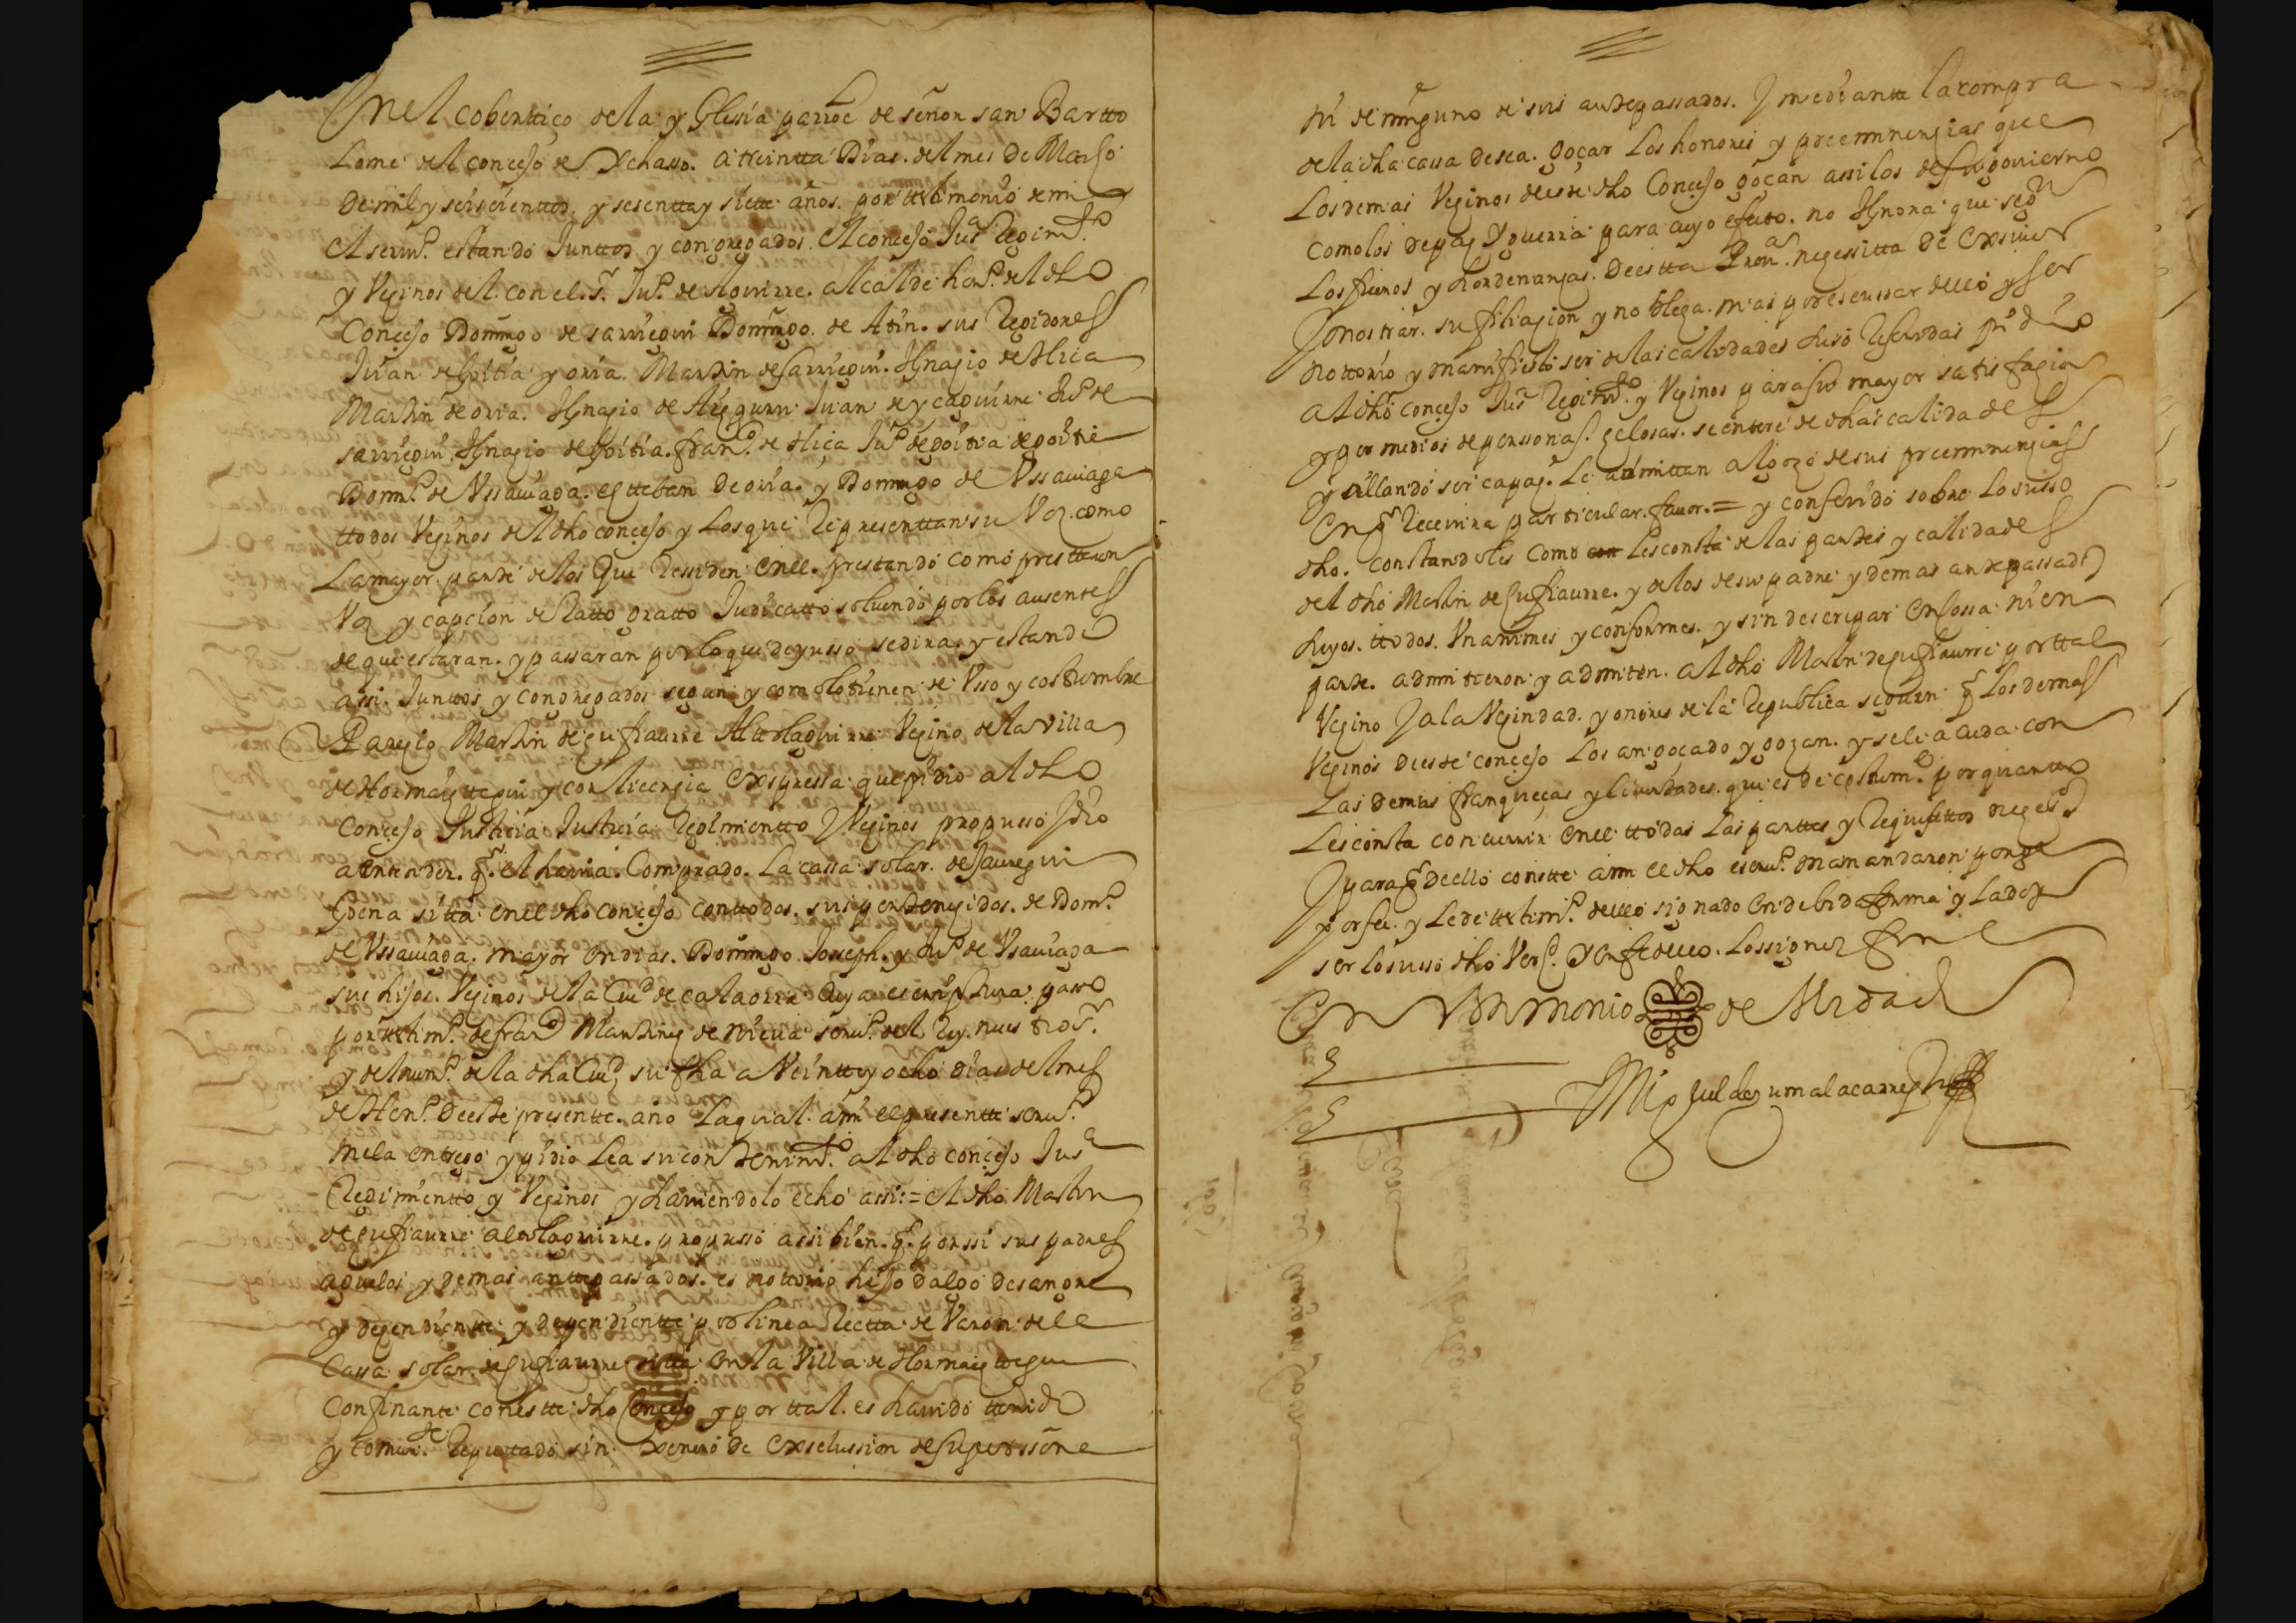 En el cobertiço de la yGlesia parroc^l de señor san Bartto
Lome del conçejo de Ychasso. a treintta Dias. del mes de Março
De mil y seiscienttos y sesentta y siette años. por testimonio de mi
el scriu.º estando Junttos y congregados. el conçejo Jusª Regim.to
y Veçinos del. con el s.r Juº de Aguirre. alcalde hordº del dho
Conçejo Domingo de sarriegui Domingo. de Atin. sus Regidores
Juan de Goitia y oria. Martin de Sarriegui. Ygnaçio de
Martin de oria. Ygnaçio de Juan de ycaguirre Juº de
sarriegui. Ygnaçio de Goitia. franº de Juº de goitia de goitia
Domº de Ussauiaga. estteban De oria. y Domingo de Ussauiaga
ttodos Veçinos del dho conçejo y Los que Representtan su Voz. como
La mayor parte de los Que Ressiden en el. prestando como presttaron
Voz y capcion de Ratto gratto Judicatto soluendo por los ausentes
de que estaran. y passaran por lo que de yusso se dira. y estando
assi. Junttos y congregados segun y como lo tienen de Vsso y costumbre
Pareçio Martin de çufiaurre Altolaguirre Veçino de la villa
de Hormaizttegui y con liçençia expressa que pidio al dho
Conçejo Justiçia Justiçia Regimientto y Veçinos propusso y dio
a entender. q.e el hauia. Comprado. La cassa solar. de Jauregui
Gdena sitta en el dho conçejo con ttodos. sus pertençidos. de Domº
de Ussauiaga. mayor en dias. Domingo Joseph. y Juº de Vsauiaga
sus hijos. Veçinos de la Ciud de calaorra Cuya escriptura passo
por testimº de franº Martinez de scriuº del Rey. nuestro sr.
y del numº de la dha Ciud, su fha a Veintte y ocho dias del mes
de Henº De este presentte. año La qual. a mi el presentte scriuº
me la entrego y pidio Lea su contenimto al dho conçejo Jusª
Regimientto y Veçinos y hauiendolo echo assi = el dho Martin
de çufiaurre altolaguirre. propusso assi bien. q.e por si sus padres
aguelos y demas anttepassados. es nottorio hijo dalgo de sangre
y dependientte por linea Rectta de Varon de la
Cassa solar de çufiaurre sitta en la Villa de Hormaizttegui
Confinante con estte dho Conçejo y por ttal. es hauido ttenido
y comunmte Reputtado sin Genero de exclussion de su perssona
ni de ninguno de sus antepassados. Y mediantte La compra
de la dha cassa desea. goçar Los honores y preeminençias que
Los demas Veçinos de este dho Conçejo goçan assi los de su gouierno
como los de paz y guerra para cuyo efeto. no Ygnora que segun
Los fueros y hordenanças. De estta Prouª. neçessitta de exsiuir
y mostrar. su filiaçion y nobleza. mas por escussar dello y ser
nottorio y manifiesto ser de las calidades suso Referidas pidio
al dho conçejo Jusª Regimto y Veçinos para su mayor satisfaçion
y por medios de perssonas çelosas. se entere de dhas calidades
y allando ser capaz. Le admittan al goze de sus preeminençias
en q.e Receuira particular. fauor. = y conferido sobre Lo susso
dho. constandoles Como Les consta de las partes y calidades
del dho Martin de çufiaurre. y de los de su padre y demas antepassados
suyos. ttodos. Vnanimes y conformes. y sin descrepar en cossa ni en
parte. admitieron y admiten. al dho Martin de çufiaurre por ttal
Veçino y a la Veçindad. y onores de la Republica segun q.e Los demas
Veçinos De este conçejo Los an goçado y goçan. y se le acuda con
Las demas franqueças y liuertades. que es de costumº por quantto
Les consta concurrir en el ttodas Las parttes y Requisittos neçesºs
y para q.e De ello constte a mi el dho escriuº mandaron ponga
por fee. y Le de testimº dello signado en debida forma y La doy
ser lo susso dho Verdº. y en fe dello. Lo signe y firme
En testtimonio de Verdad
Miguel de Zumalacarregui